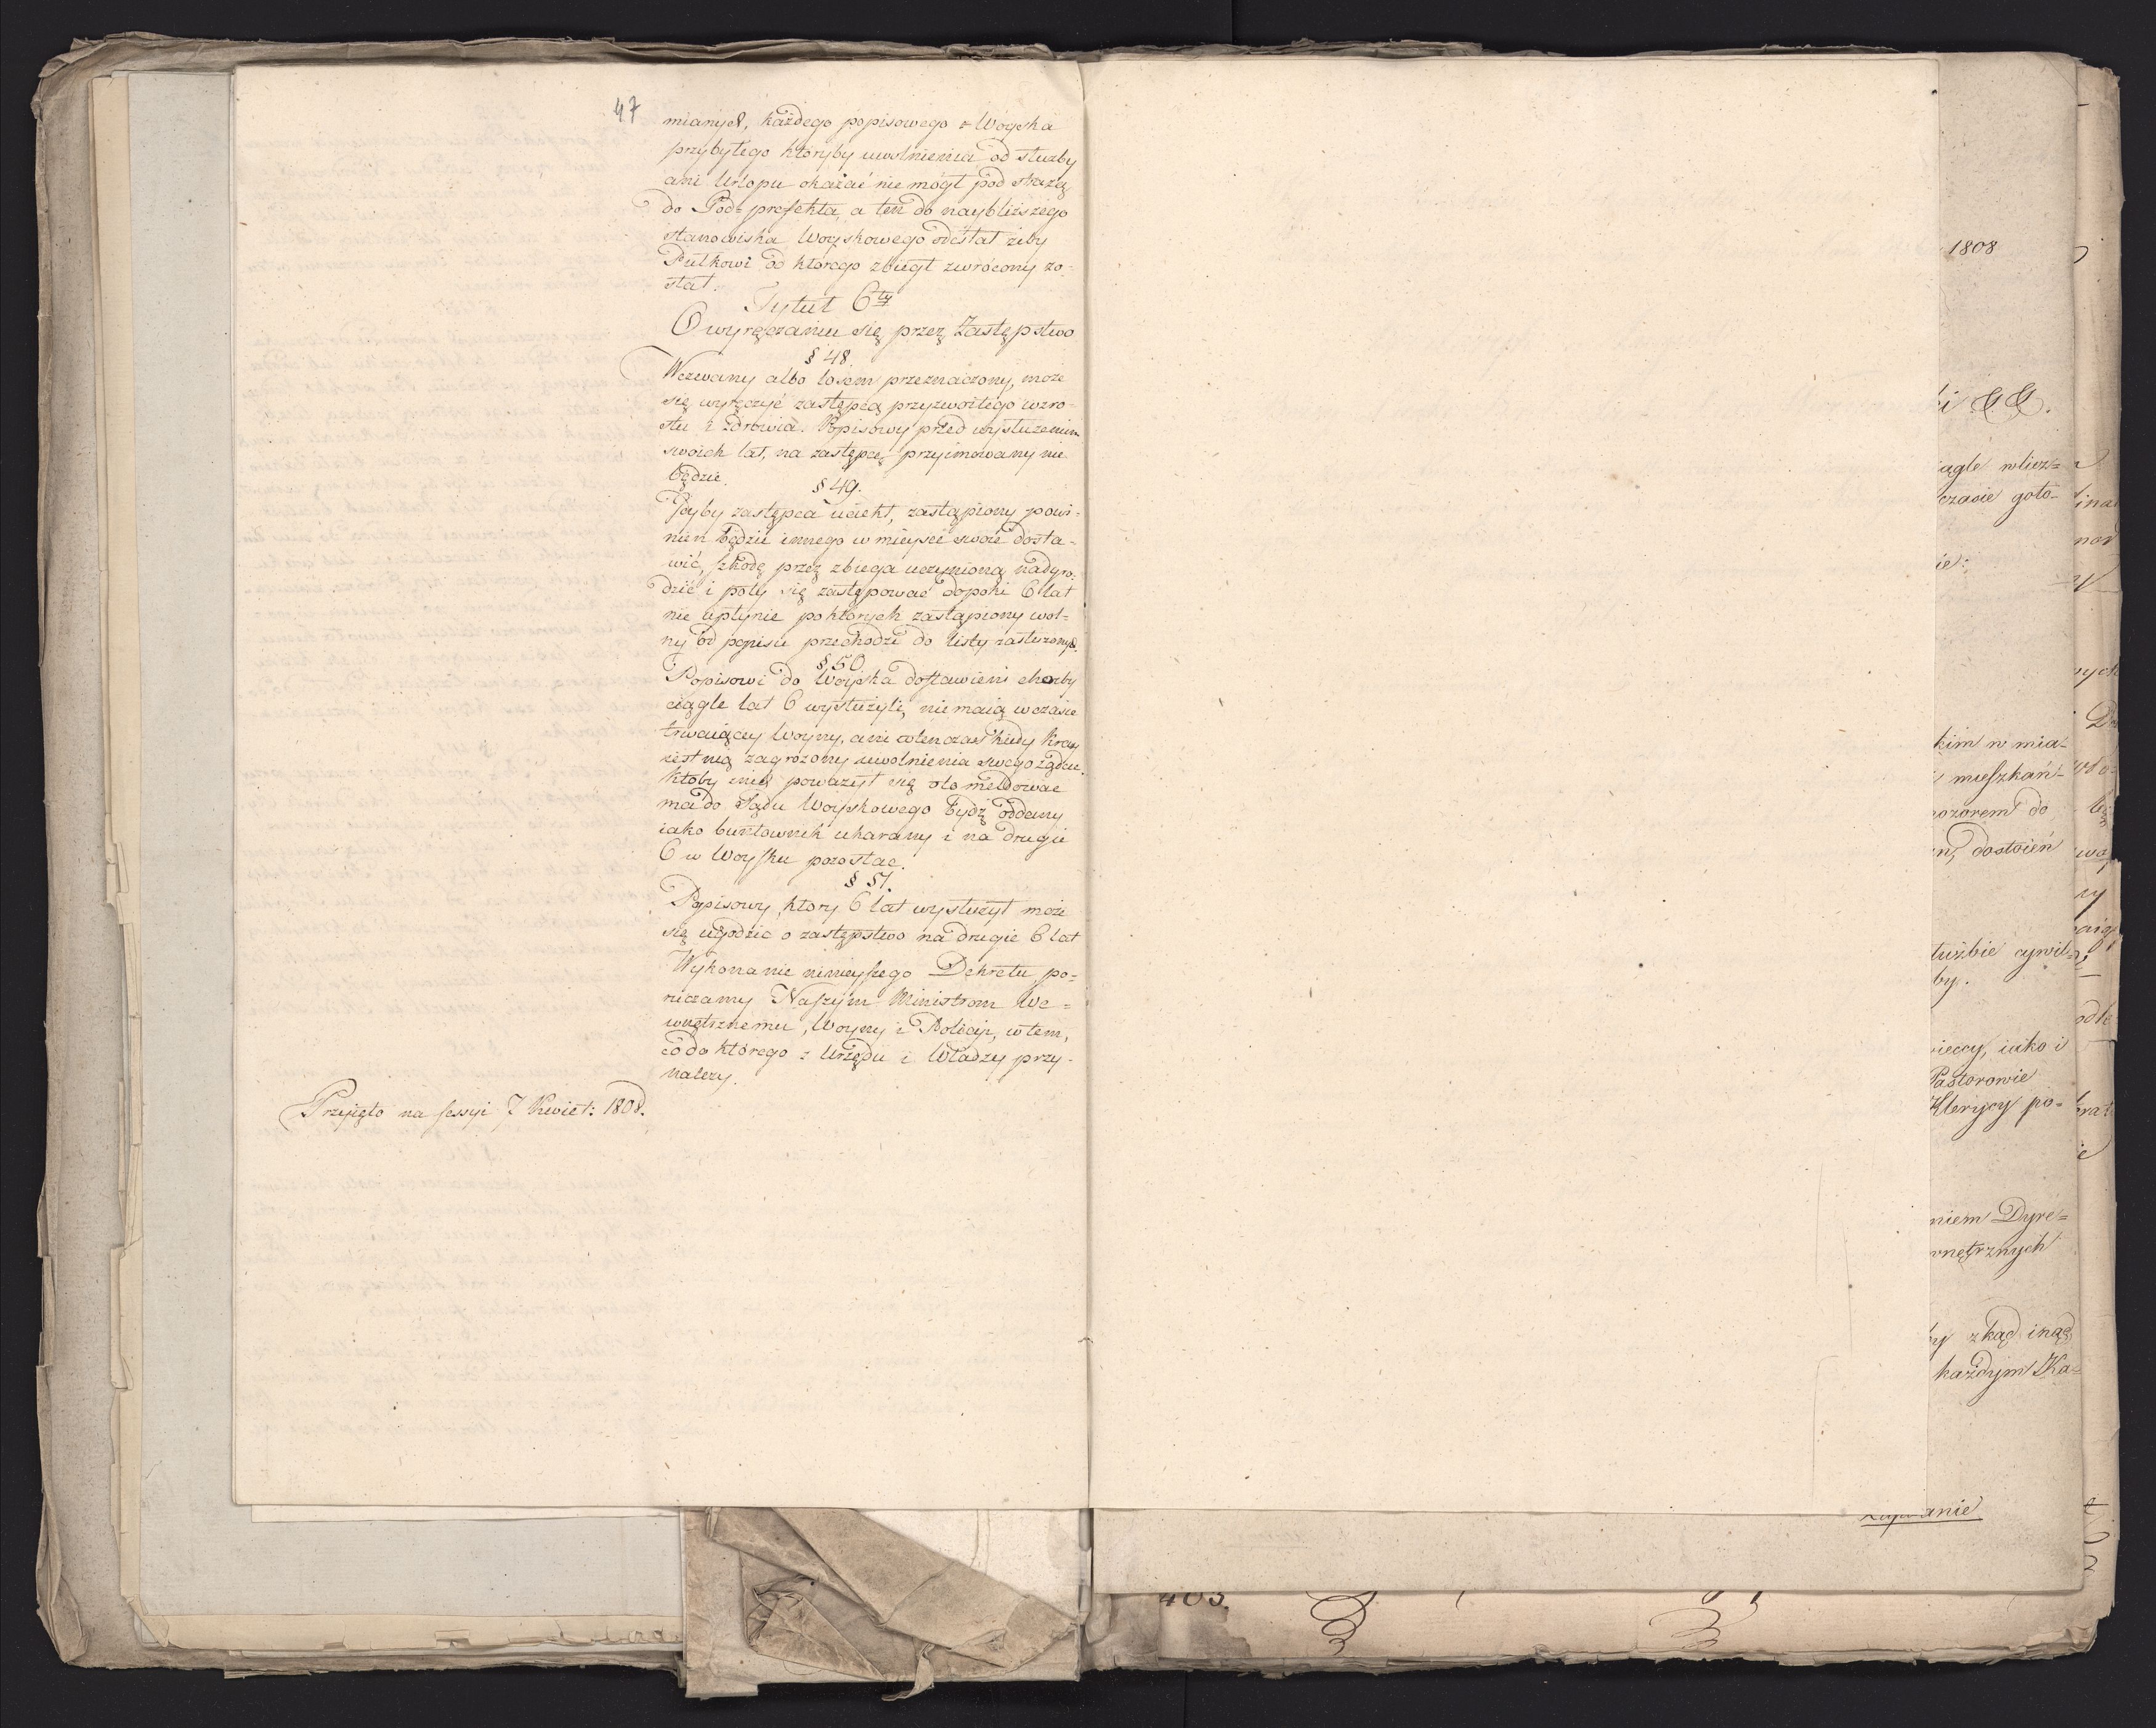 47
mianych, każdego popisowego z Woyska
przybyłego któryby uwolnienia od służby
ani Urlopu okazać nie mógł pod strażą
do Pod-prefekta, a ten do naybliższego
stanowiska Woyskowego odesłał żeby
Pułkowi od którego zbiegł zwrócony zo-
stał.
Tytuł 6ty
O wyręczaniu się przez Zastępstwo
§ 48.
Wezwany albo losem przeznaczony, może
się wyręczyć zastępcą przyzwoitego wzro-
stu i zdrowia. Popisowy przed wysłużeniem
swoich lat, na zastępcę przyimowany nie
będzie.
§ 49.
Gdyby zastępca uciekł, zastąpiony powi-
nien będzie innego w mieysce swoie dosta-
wić, szkodę przez zbiega uczynioną nadgro-
dzić i poty się zastępować dopoki 6 lat
nie upłynie po których zastąpiony wol-
ny od popisu przechodzi do listy zasłużonych.
§ 50.
Popisowi do Woyska dostawieni choćby
ciągle lat 6 wysłużyli, nie maią w czasie
trwaiącey Woyny, ani wtenczas kiedy Kray
iest nią zagrożony uwolnienia swego żądać.
ktoby się poważył się oto meldować
ma do Sądu Woyskowego bydź oddany
iako buntownik ukarany i na drugie
6 w Woysku pozostać.
§ 51.
Popisowy, który 6 lat wysłużył może
się ugodzić o zastępstwo na drugie 6 lat
Wykonanie ninieyszego Dekretu po-
ruczamy Naszym Ministrom We-
wnętrznemu, Woyny i Policyi, w tem,
co do którego z Urzędu i Władzy przy-
należy.
Przyięto na sessyi 7 Kwiet: 1808.
1808
i &&.
iągle wlicz=
czasie goto-
ie:
kim w mia-
mieszkań-
pozorem do
dostoień
tużbie cywil=
by.
ieccy, iako i
Pastorowie
Klerycy po-
niem Dyre=
wnętrznych
by zkąd inąd
każdym Ka=
anie
403.